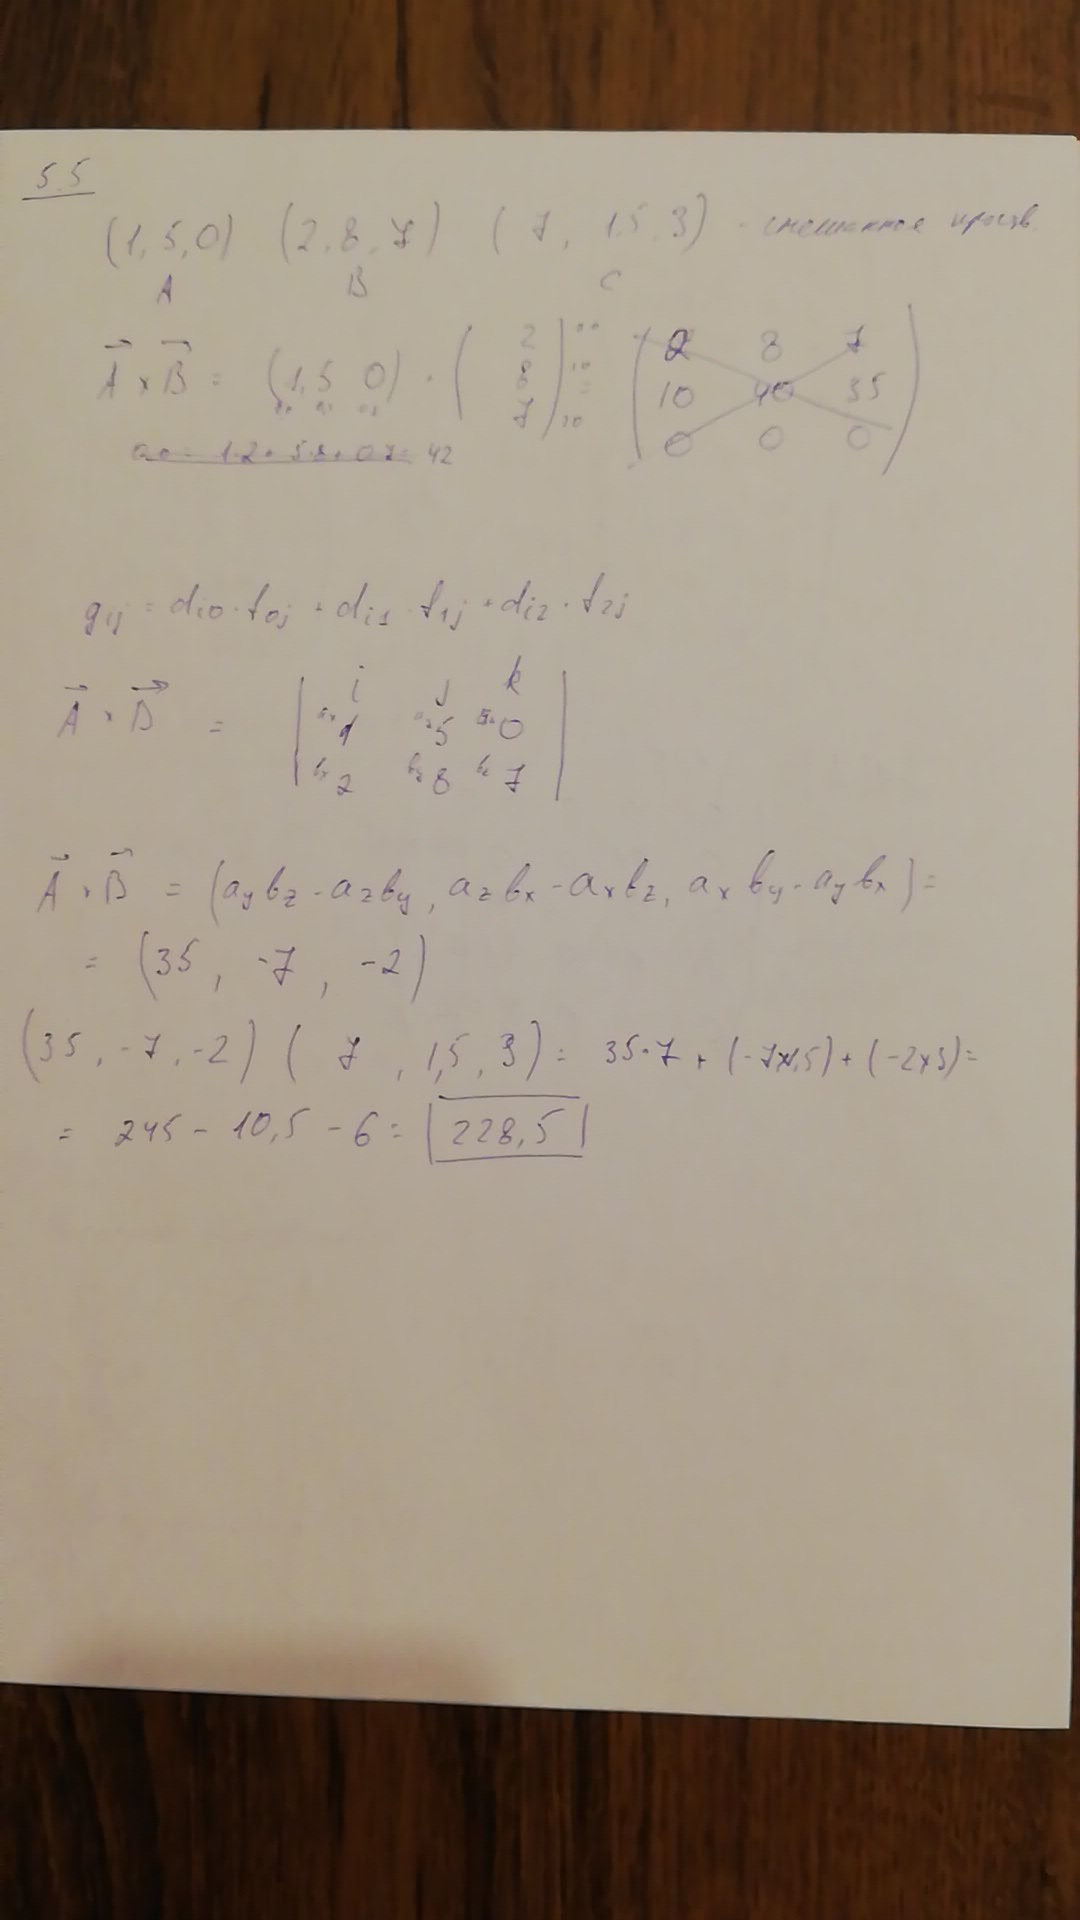 5.5
(1, 5, 0) (2, 8, 7) ( 7, 1,5, 3) - смешанное произв.
A B C
A × B = (1, 5 0) · ( 2 8 7 ) ( 2 8 7
10 40 35
0 0 0 )
1·2 + 5·8 + 0·7 = 42
gij = di0 · f0j + di1 · f1j + di2 · f2j
A × B = | i j k
1 5 0
2 8 7 |
A × B = (aybz - azby, azbx - axbz, axby - aybx) =
= (35, -7, -2)
(35, -7, -2) ( 7, 1,5, 3) = 35·7 + (-7×1,5) + (-2×3) =
= 245 - 10,5 - 6 = 228,5